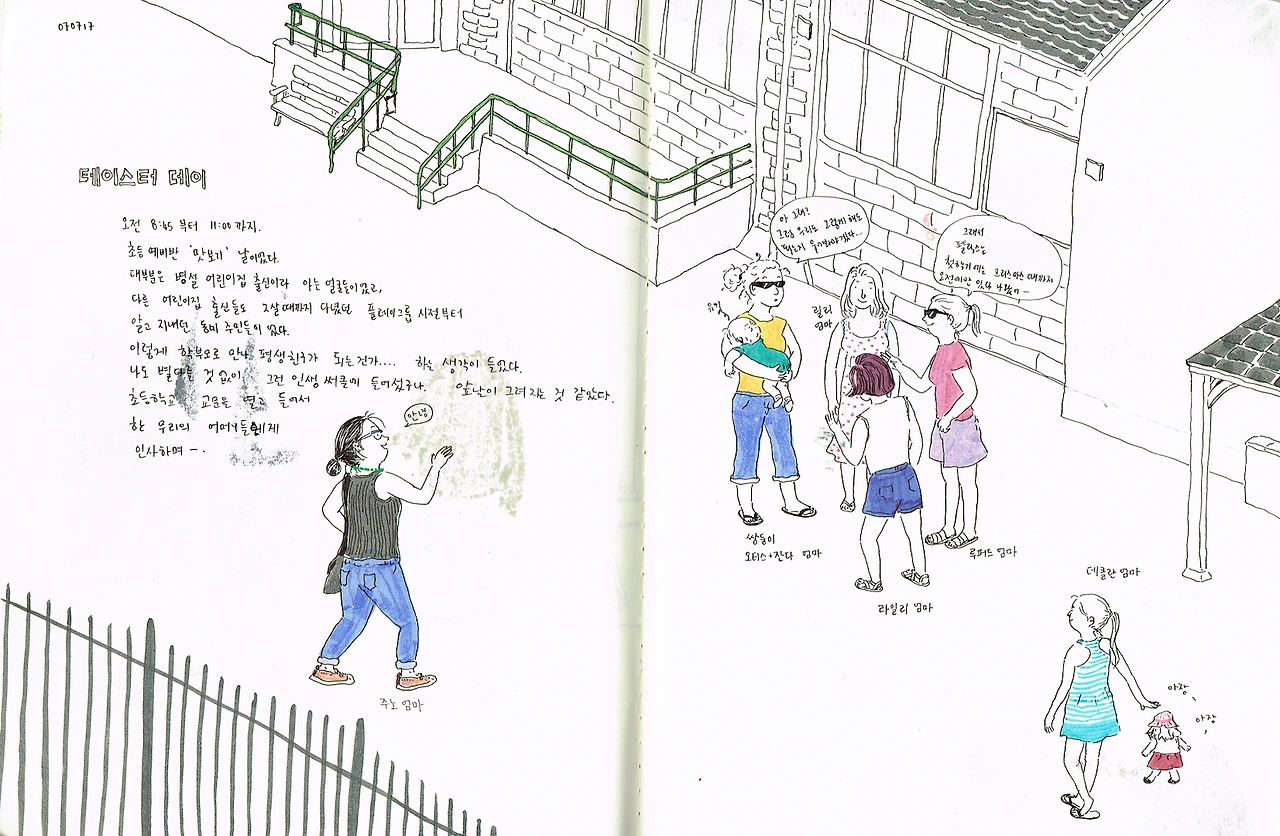 070717
테이스터 데이
오전 8:45 부터 11:00 까지.
초등 예비반 '맛보기' 날이었다.
대부분은 병설 어린이집 출신이라 아는 얼굴들이었고,
다른 어린이집 출신들도 2살때까지 다녔던 플레이그룹 시절부터
알고 지내던 동네 주민들이 있다.
이렇게 학부모로 만나 평생친구가 되는건가.... 하는 생각이 들었다.
나도 별다를 것 없이 그런 인생 써클에 들어섰구나. 앞날이 그려지는 것 같았다.
초등학교 교문을 열고 들어서
한 무리의 어머니들에게
인사하며 -.
안녕
주노 엄마
아 그래?
그럼 우리도 그렇게 해도
되는지 물어봐야겠다...
그래서
펠릭스는
첫학기에는 크리스마스 때까지
오전에만 있다 나왔어 -
릴리
엄마
쌍둥이
오티스+잔다 엄마
루퍼드 엄마
라일리 엄마
데클란 엄마
아장,
아장,